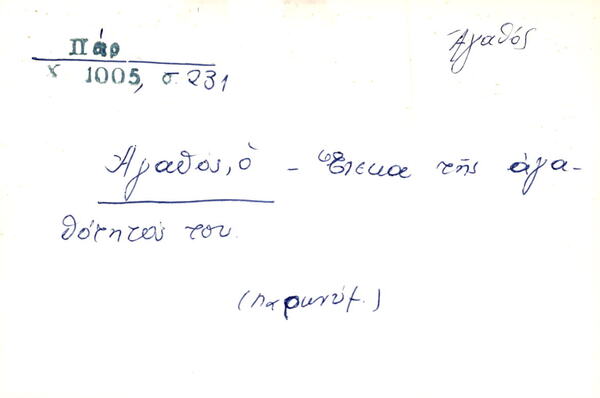 Πάρ
χ 1005, σ. 231
Ἀγαθός
Ἀγαθός, ὁ - Ἕνεκα τῆς ἀγα-
θότητός του.
(παρωνύμ.)